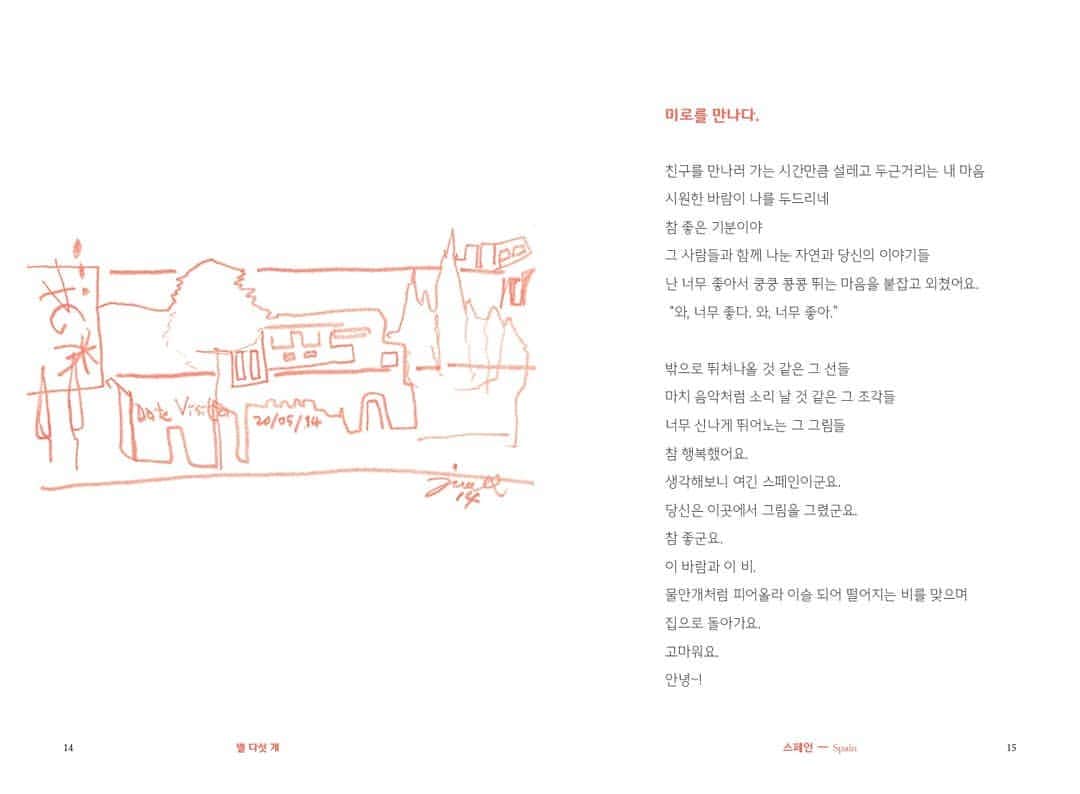 Date Visit
20/05/14
14
14
별 다섯 개
미로를 만나다.
친구를 만나러 가는 시간만큼 설레고 두근거리는 내 마음
시원한 바람이 나를 두드리네
참 좋은 기분이야
그 사람들과 함께 나눈 자연과 당신의 이야기들
난 너무 좋아서 쿵쿵 콩콩 뛰는 마음을 붙잡고 외쳤어요.
"와, 너무 좋다. 와, 너무 좋아."
밖으로 뛰쳐나올 것 같은 그 선들
마치 음악처럼 소리 날 것 같은 그 조각들
너무 신나게 뛰어노는 그 그림들
참 행복했어요.
생각해보니 여긴 스페인이군요.
당신은 이곳에서 그림을 그렸군요.
참 좋군요.
이 바람과 이 비.
물안개처럼 피어올라 이슬 되어 떨어지는 비를 맞으며
집으로 돌아가요.
고마워요.
안녕~!
스페인 — Spain
15